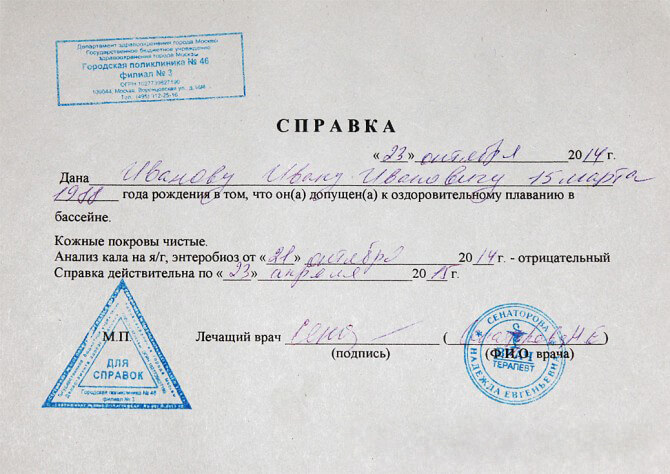 Департамент здравоохранения города Москвы
Государственное бюджетное учреждение
здравоохранения города Москвы
Городская поликлиника № 46
филиал № 3
Москва, Воронцовская ул.
СПРАВКА
«23» октября 2014 г.
Дана Иванову Ивану Ивановичу 15 марта
1988 года рождения в том, что он(а) допущен(а) к оздоровительному плаванию в
бассейне.
Кожные покровы чистые.
Анализ кала на я/г, энтеробиоз от «21» октября 2014 г. - отрицательный
Справка действительна по «23» апреля 2015 г.
М.П. Лечащий врач ( Сенаторова Н.Е )
(подпись) (Ф.И.О. врача)
ДЛЯ
СПРАВОК
Городская поликлиника № 46
филиал № 3
СЕНАТОРОВА
НАДЕЖДА ЕВГЕНЬЕВНА
ВРАЧ
ТЕРАПЕВТ